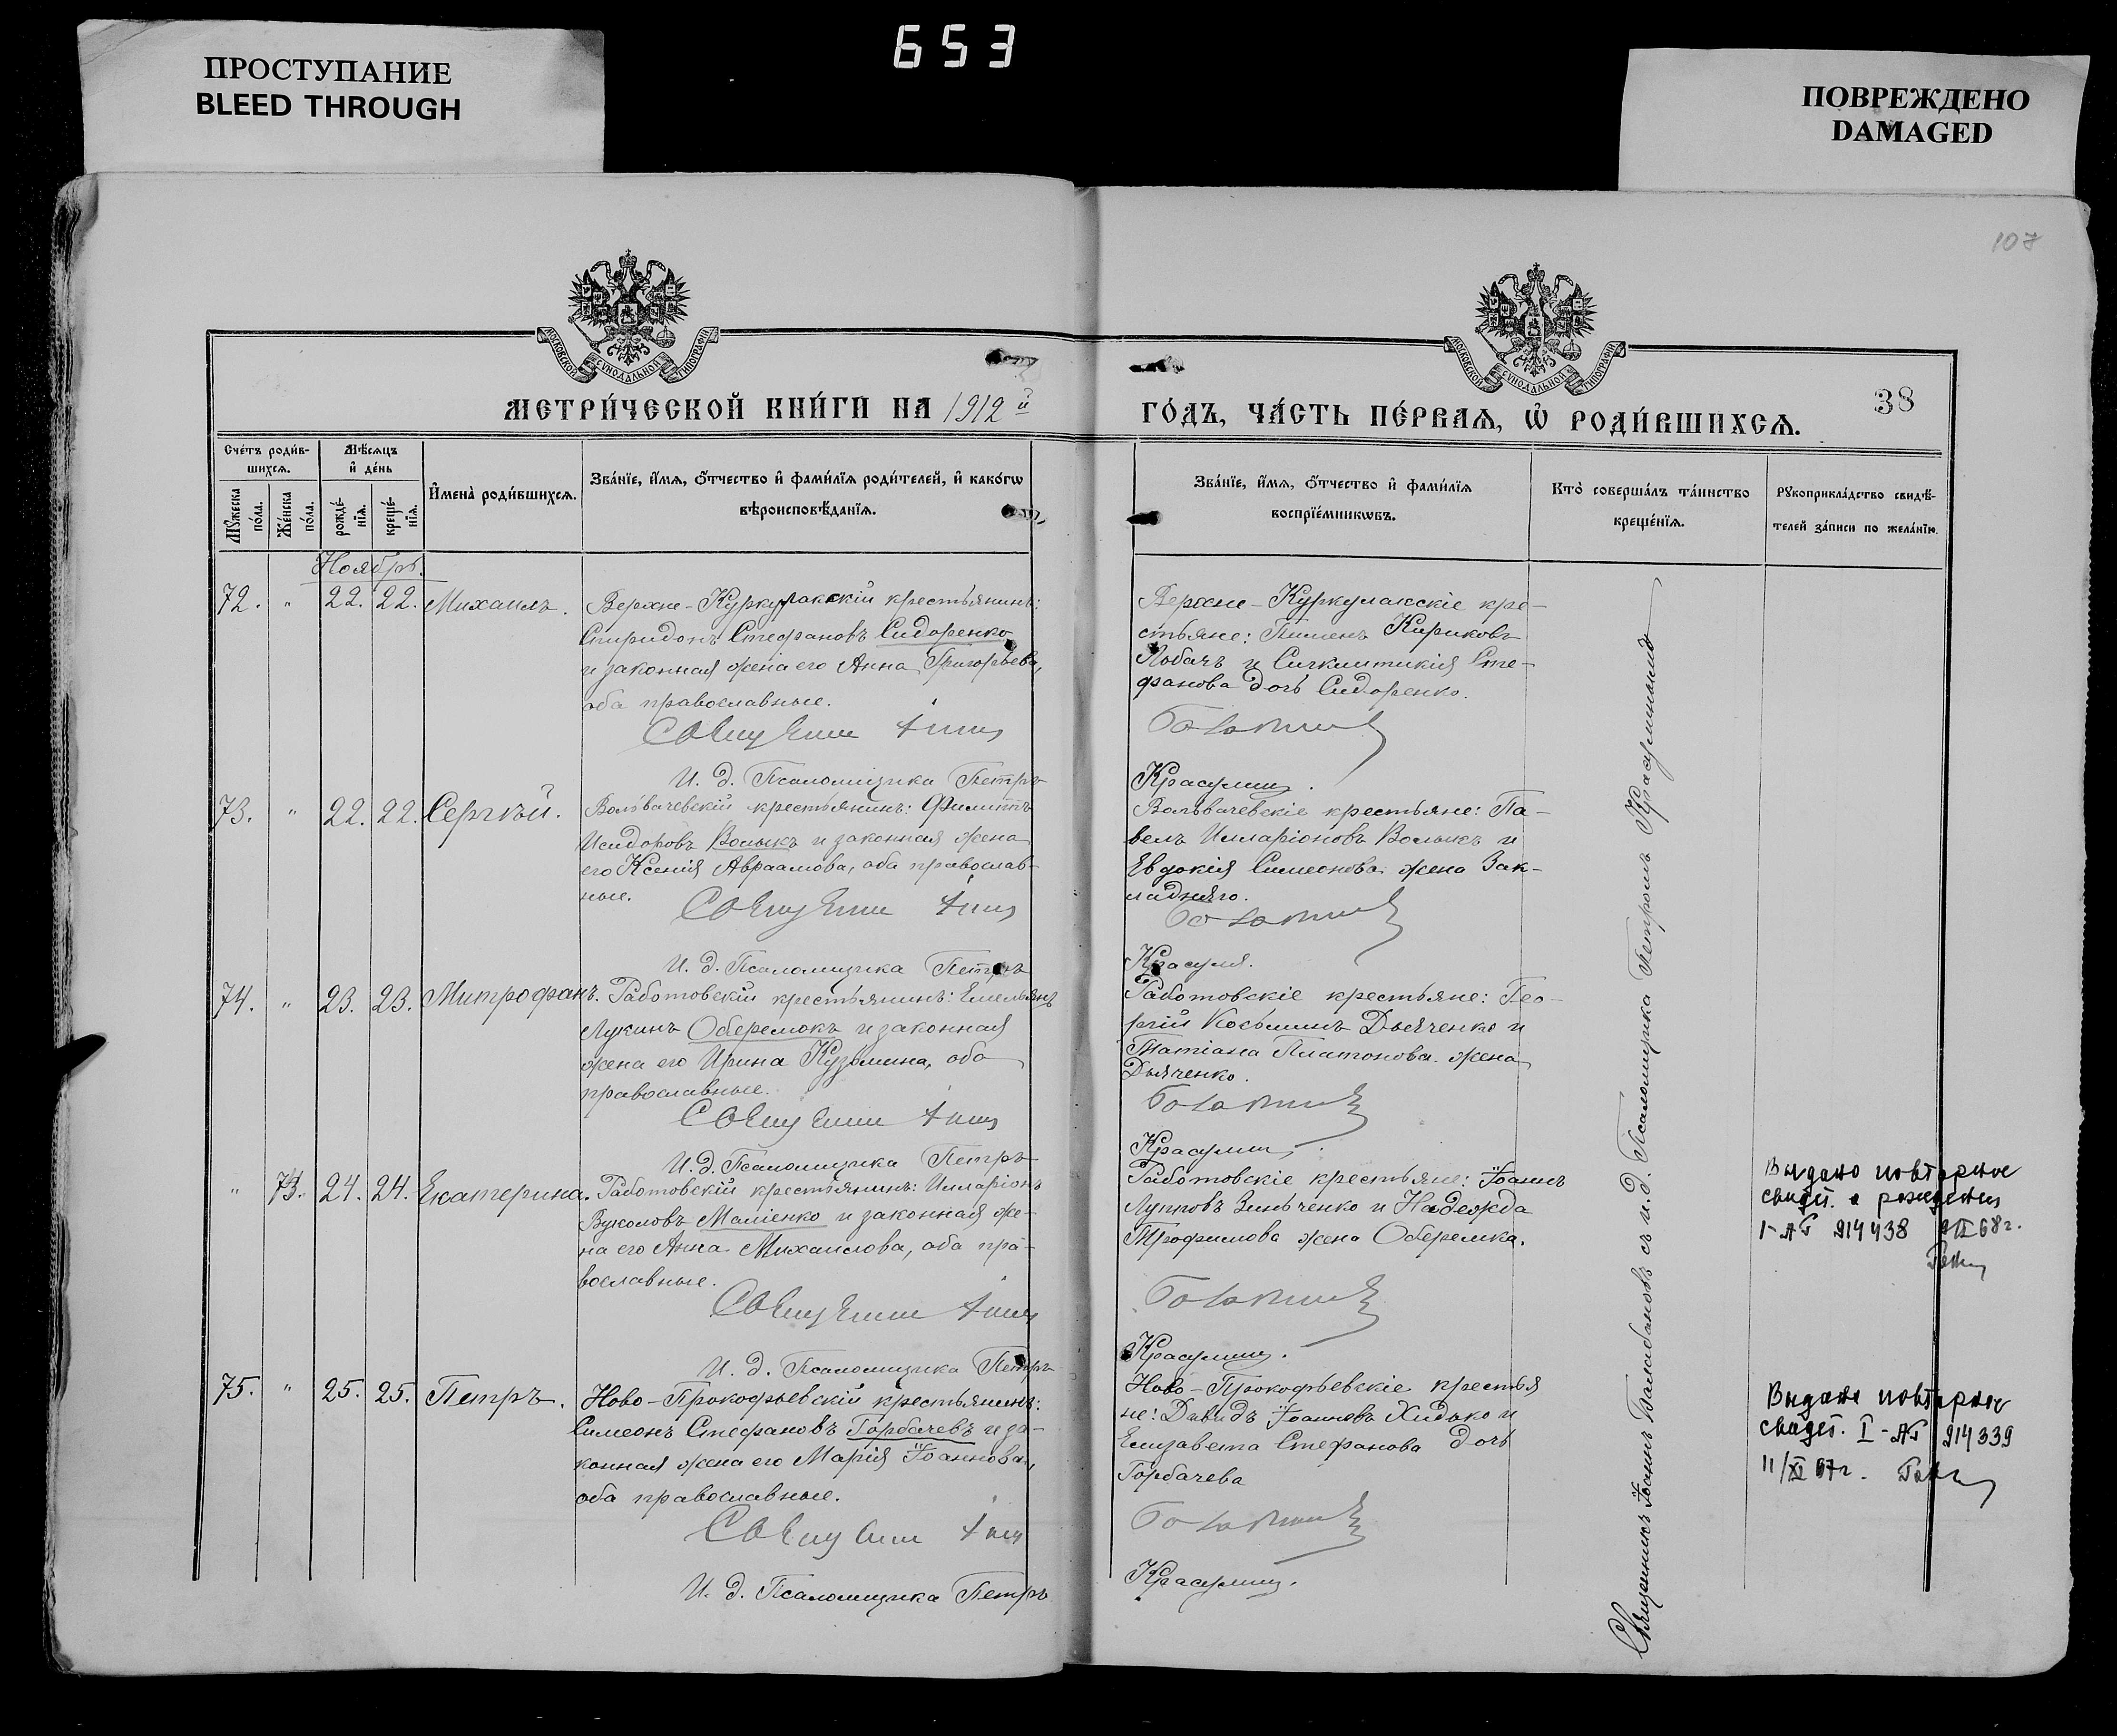 653
ПРОСТУПАНИЕ
BLEED THROUGH
ПОВРЕЖДЕНО
DAMAGED
107
МОСКОВСКОЙ СѴНОДАЛЬНОЙ ТИПОГРАФІИ
МОСКОВСКОЙ СѴНОДАЛЬНОЙ ТИПОГРАФІИ
МЕТРИ́ЧЕСКОЙ КНИ́ГИ НА 1912й
ГО́ДЪ, ЧА́СТЬ ПЕ́РВАЯ, Ѡ҆ РОДИ́ВШИХСЯ.
38
Сче́тъ роди́в-
шихся.
Мѣ́сяцъ
и҆ де́нь
Мꙋ́жеска
по́ла.
Же́нска
по́ла.
рожде́-
нїѧ.
креще́-
нїѧ.
И҆мена̀ роди́вшихся.
Зва́нїе, и҆́мѧ, ѻ҆́тчество и҆ фами́лїѧ роди́телей, и҆ како́гѡ
вѣроисповѣ́данїѧ.
Зва́нїе, и҆́мѧ, ѻ҆́тчество и҆ фами́лїѧ
воспрїе́мникѡвъ.
Кто̀ соверша́лъ та́инство
креще́нїѧ.
Рꙋкоприкла́дство свидѣ́-
телей за́писи по жела́нїю.
Ноябрь.
72. " 22. 22. Михаилъ.
Верхне-Куркулакскій крестьянинъ:
Спиридонъ Стефановъ Сидоренко
и законная жена его Анна Григорьева,
оба православные.
Верхне-Куркулакскіе кре-
стьяне: Пименъ Кириковъ
Лобачъ и Синклитикія Сте-
фанова дочь Сидоренко.
И. д. Псаломщика Петръ
Красулинъ.
73. " 22. 22. Сергѣй.
Вольвачевскій крестьянинъ: Филиппъ
Исидоровъ Волыкъ и законная жена
его Ксенія Авраамова, оба православ-
ные.
Вольвачевскіе крестьяне: Па-
велъ Илларіоновъ Волыкъ и
Евдокія Симеонова жена Зак-
ладняго.
И. д. Псаломщика Петръ
74. " 23. 23. Митрофанъ.
Работовскій крестьянинъ: Емельянъ
Лукинъ Оберемокъ и законная
жена его Ирина Кузьмина, оба
православные.
Работовскіе крестьяне: Гео-
ргій Косьминъ Дьяченко и
Татіана Платонова жена
Дьяченко.
И. д. Псаломщика Петръ
Красулинъ.
" 73. 24. 24. Екатерина.
Работовскій крестьянинъ: Илларіонъ
Вуколовъ Маліенко и законная же-
на его Анна Михаилова, оба пра-
вославные.
Работовскіе крестьяне: Іоаннъ
Лупповъ Зинченко и Надежда
Трофимова жена Оберемка.
Выдано повторное
свидет. о рождении
I-АП 914438
И. д. Псаломщика Петръ
Красулинъ.
75. " 25. 25. Петръ.
Ново-Прокофьевскій крестьянинъ:
Симеонъ Стефановъ Горбачевъ и за-
конная жена его Марія Іоаннова,
оба православные.
Ново-Прокофьевскіе крестья
не: Давидъ Іоанновъ Хидько и
Елизавета Стефанова дочь
Горбачева
Выдано повторное
свидет. I-АП 914339
11/XI 67г.
И. д. Псаломщика Петръ
Красулинъ.
Священникъ Іоаннъ Балабановъ съ и. д. Псаломщика Петромъ Красулинымъ